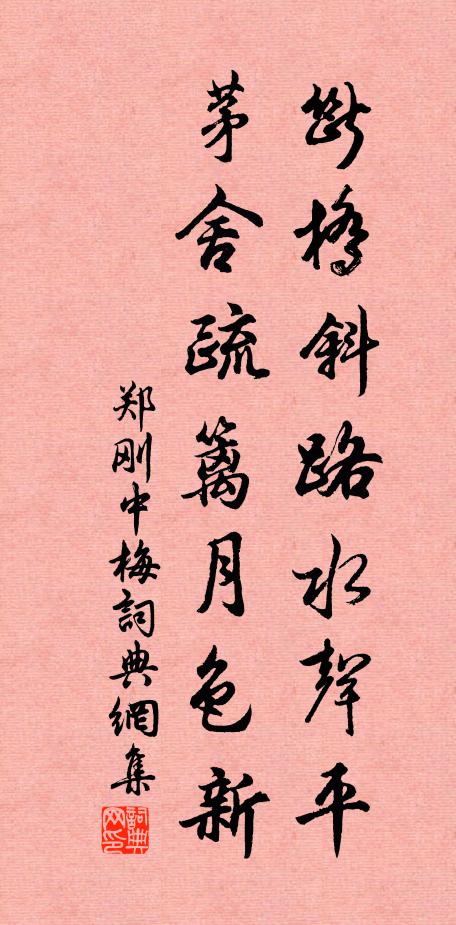 斷橋斜路水聲平
茅舍疏篱月色新
郑刚中梅詞典網集
詞典网印